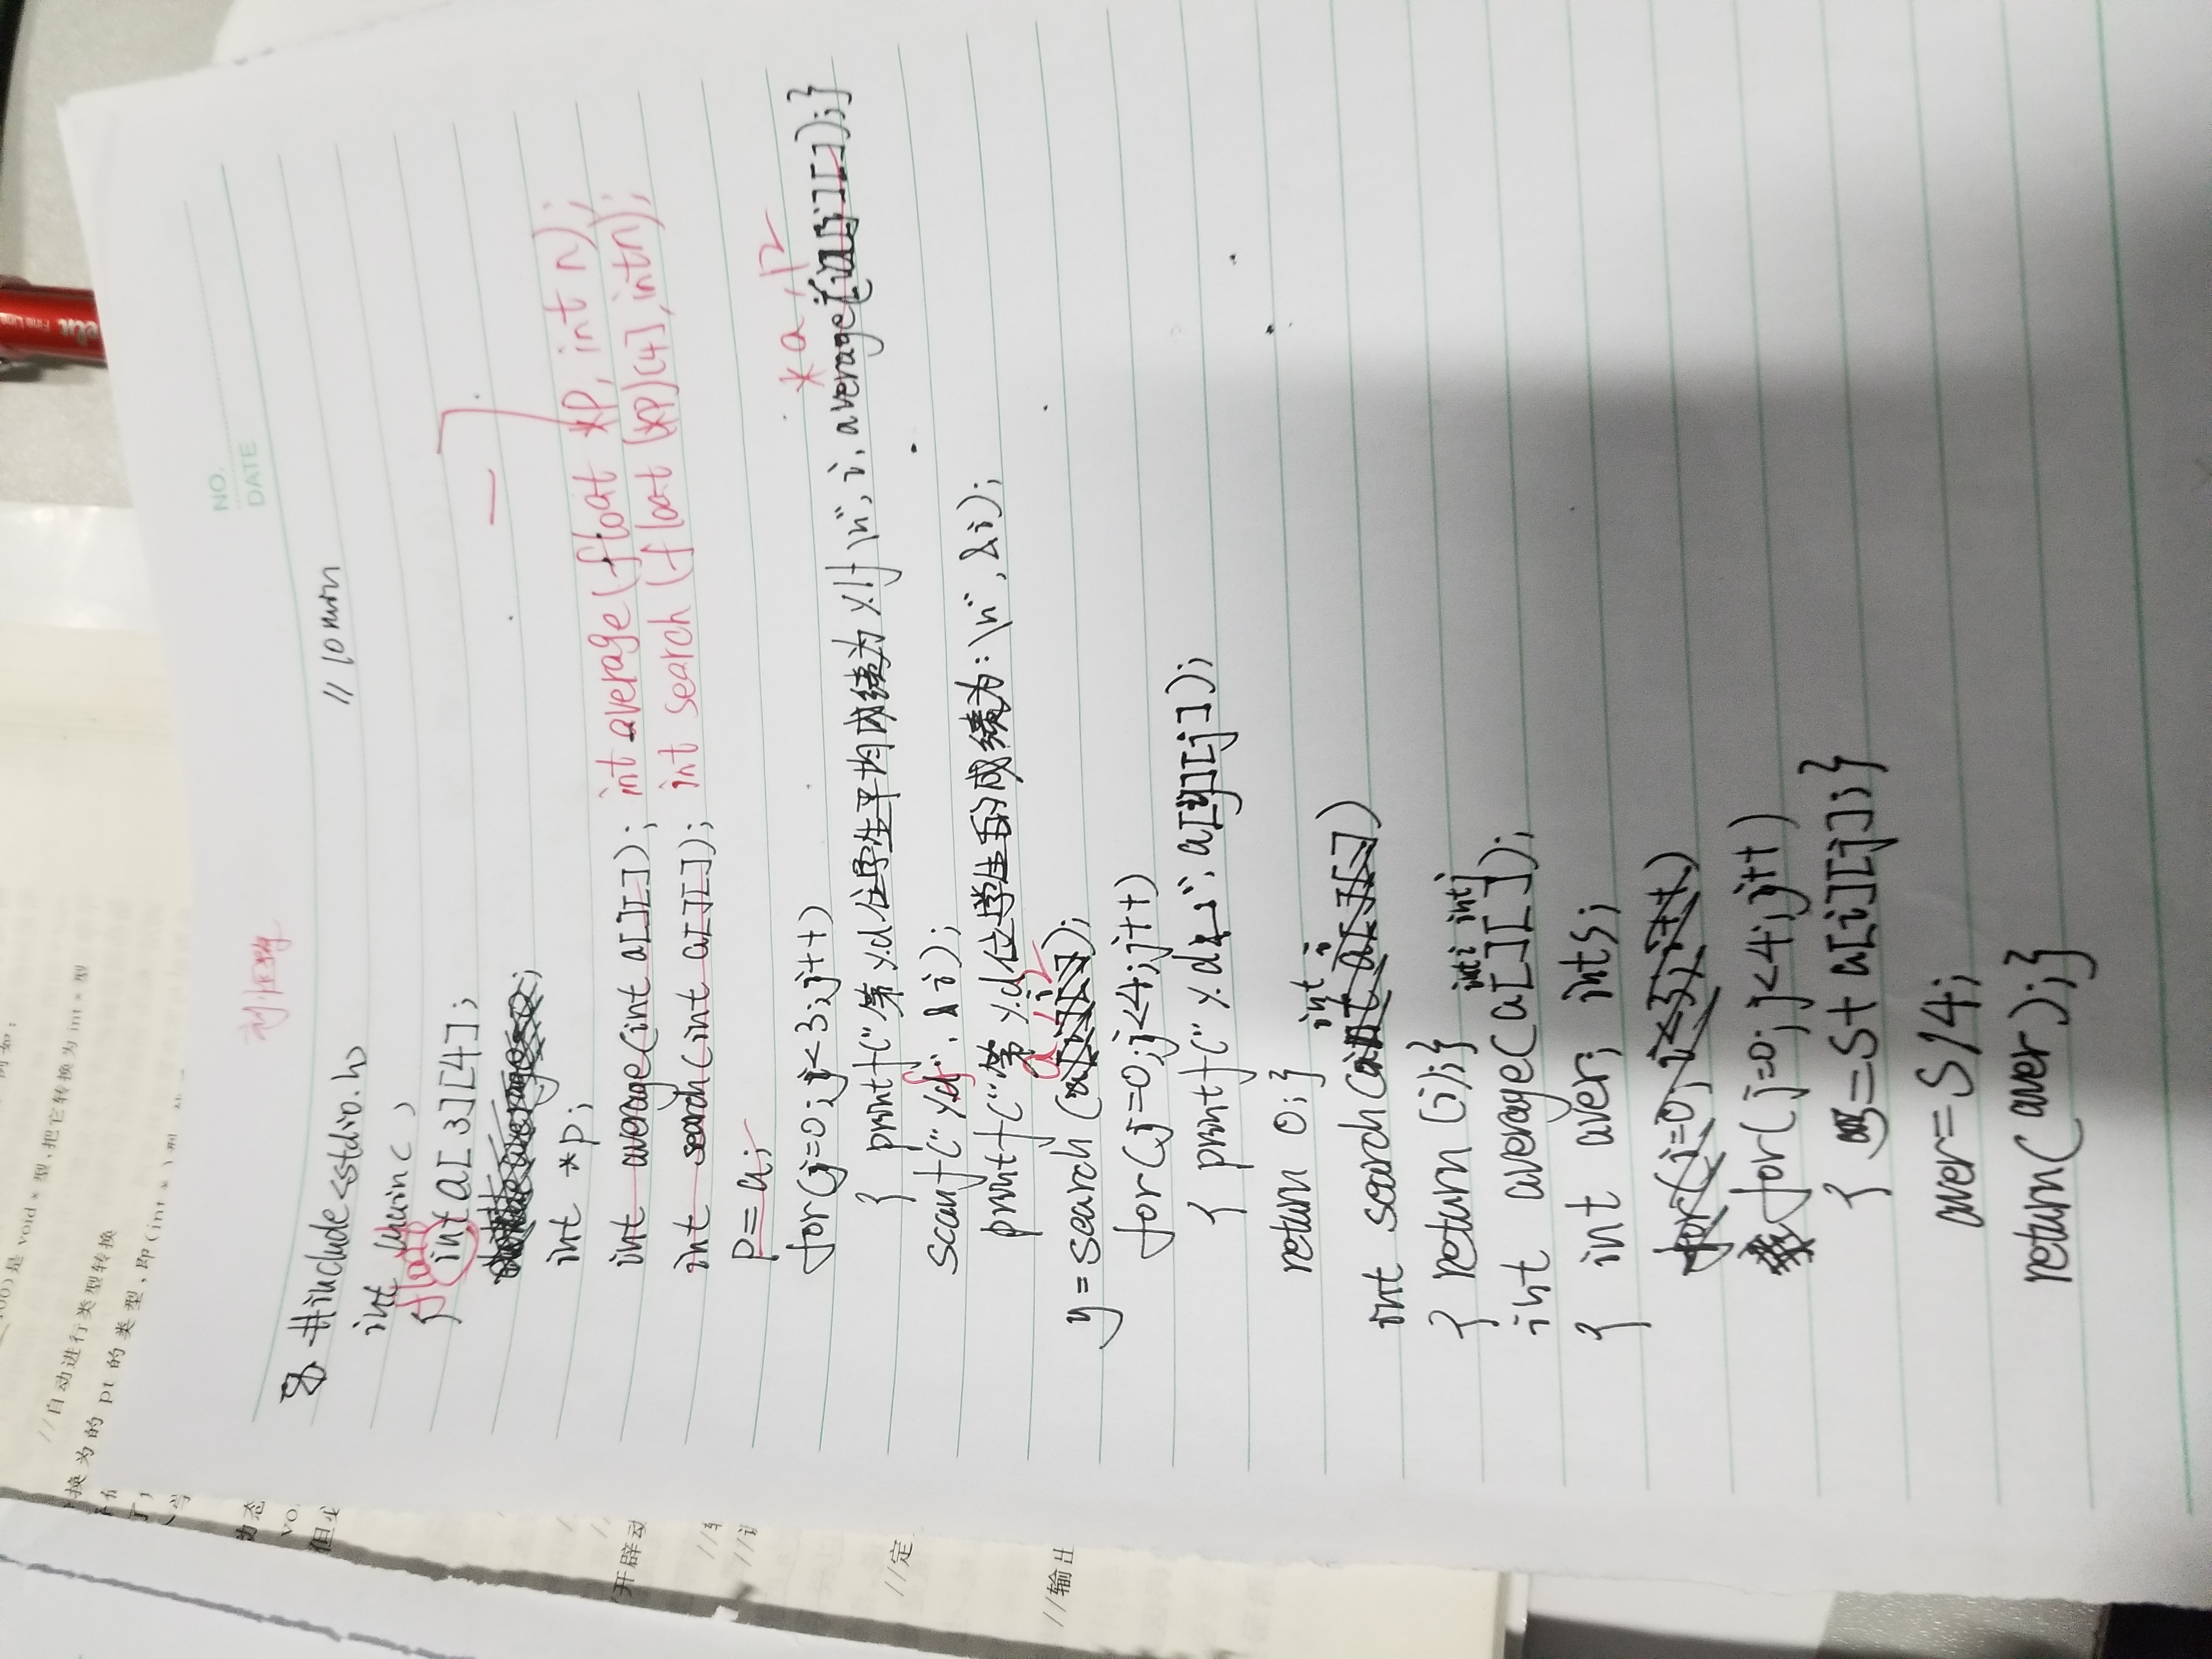 00)是 void * 型,把它转换为 int * 型
//自动进行类型转换
换为的 pt 的类型,即(int *)型
动态
vo
但必
开辟动
//定
//输出
NO.
DATE
#include<stdio.h>
// 10min
int main( )
float
{ int a[3][4];
int *p;
int average(int a[][]); int average(float *p, int n);
int search(int a[][]); int search(float (*p)[4], int n);
p=a;
for(j=0;j<3;j++)
*a,12
{ printf("第%d位学生平均成绩为%lf\n", i, average );}
f
scanf("%d", &i);
printf("第%d位学生的成绩为:\n", &i);
a, i2
y=search(a[i][]);
for(j=0;j<4;j++)
{ printf("%d ", a[y][j]);
return 0;}
int i
int search(int a[][])
{ return (i);}
int i int j
int average(a[][]);
{ int aver; int s;
for(i=0;i<3;i++)
for(j=0;j<4;j++)
{ s=s+a[i][j];}
aver=s/4;
return(aver);}